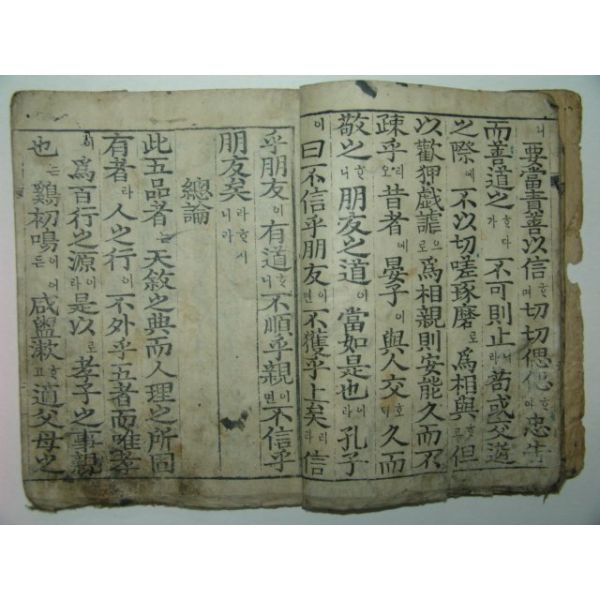 니要當責善以信ᄒᆞ며切切偲偲ᄒᆞ야忠告
而善道之호ᄃᆡ가不可則止니라苟或交遊
之際에不以切嗟琢磨로爲相與ᄒᆞ고但
以歡狎戲謔으로爲相親則安能久而不
疎乎리오昔者에晏子이與人交호ᄃᆡ久而
敬之ᄒᆞ니朋友之道이當如是也이라孔子
이曰不信乎朋友이면不獲乎上矣리라信
乎朋友이有道ᄒᆞ니不順乎親이면不信乎
朋友矣라ᄒᆞ시니라
總論
此五品者는天敘之典而人理之所固
有者라人之行이不外乎五者而唯孝
이爲百行之源이라是以로孝子之事親
也는鷄初鳴이어든咸盥漱ᄒᆞ고適父母之